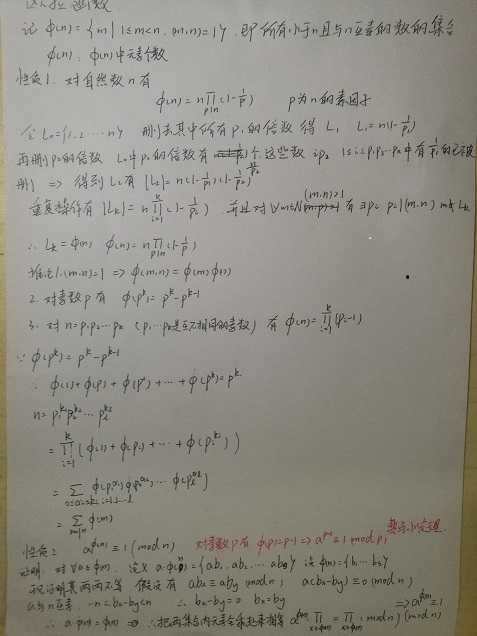 欧拉函数
记 Φ(n)={m | 1≤m<n, (m,n)=1}, 即所有小于n且与n互素的数的集合
φ(n): Φ(n)中元素个数
性质1. 对自然数n有
φ(n)=n∏_{p|n}(1-1/p) p为n的素因子
令 L₀={1,2,…n} 删去其中所有p₁的倍数 得 L₁ L₁=n(1-1/p₁)
再删p₂的倍数 L₀中p₂的倍数有 n/p₂ 个 这些数 ip₂ 中有 1/p₁ 的已被
删 ⇒ 得到L₂有 |L₂|=n(1-1/p₁)(1-1/p₂)
重复操作有 |L_k|=n∏_{i=1}^{k}(1-1/p_i) 并且对 ∀m∈N (m,n)>1 有 ∃p_i p_i|(m,n) m∉L_k
∴ L_k=Φ(n) φ(n)=n∏_{p|n}(1-1/p)
推论1.(m,n)=1 ⇒ φ(m,n)=φ(m)φ(n)
2. 对素数p有 φ(p^k)=p^k-p^{k-1}
3. 对 n=p₁p₂…p_k (p₁…p_k是互不相同的素数) 有 φ(n)=∏_{i=1}^{k}(p_i-1)
∵ φ(p^k)=p^k-p^{k-1}
∴ φ(1)+φ(p)+φ(p²)+…+φ(p^k)=p^k
n=p₁^{k₁}p₂^{k₂}…
=∏_{i=1}(φ(1)+φ(p_i)+…+φ(p_i^{k_i}))
=∑φ(p₁^{a₁})φ(p₂^{a₂})…
=∑_{m|n}φ(m)
性质2: a^{φ(n)}≡1(mod n) 对素数p有 φ(p)=p-1 ⇒ a^{p-1}≡1 mod p; 费马小定理
证明. 对∀a∈Φ(n), 定义 a·Φ(n)={ab₁,ab₂,…} 设Φ(n)={b₁…}
现证明其两两不等 假设有 ab_x≡ab_y (mod n); a(b_x-b_y)≡0(mod n)
a与n互素, -n<b_x-b_y<n ∴ b_x-b_y=0 b_x=b_y ⇒ a^{φ(n)}≡1
∴ a·Φ(n)=Φ(n) ⇒ ∴把两集合内元素全乘起来相等 a^{φ(n)}∏_{x∈Φ(n)}x≡∏_{x∈Φ(n)}x (mod n)